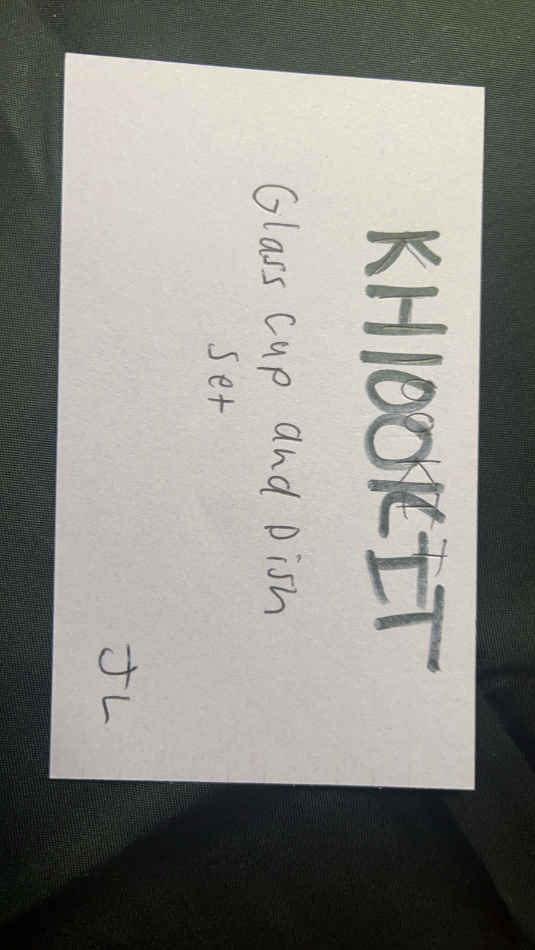 KH100KIT
Glass cup and Dish
Set
JL